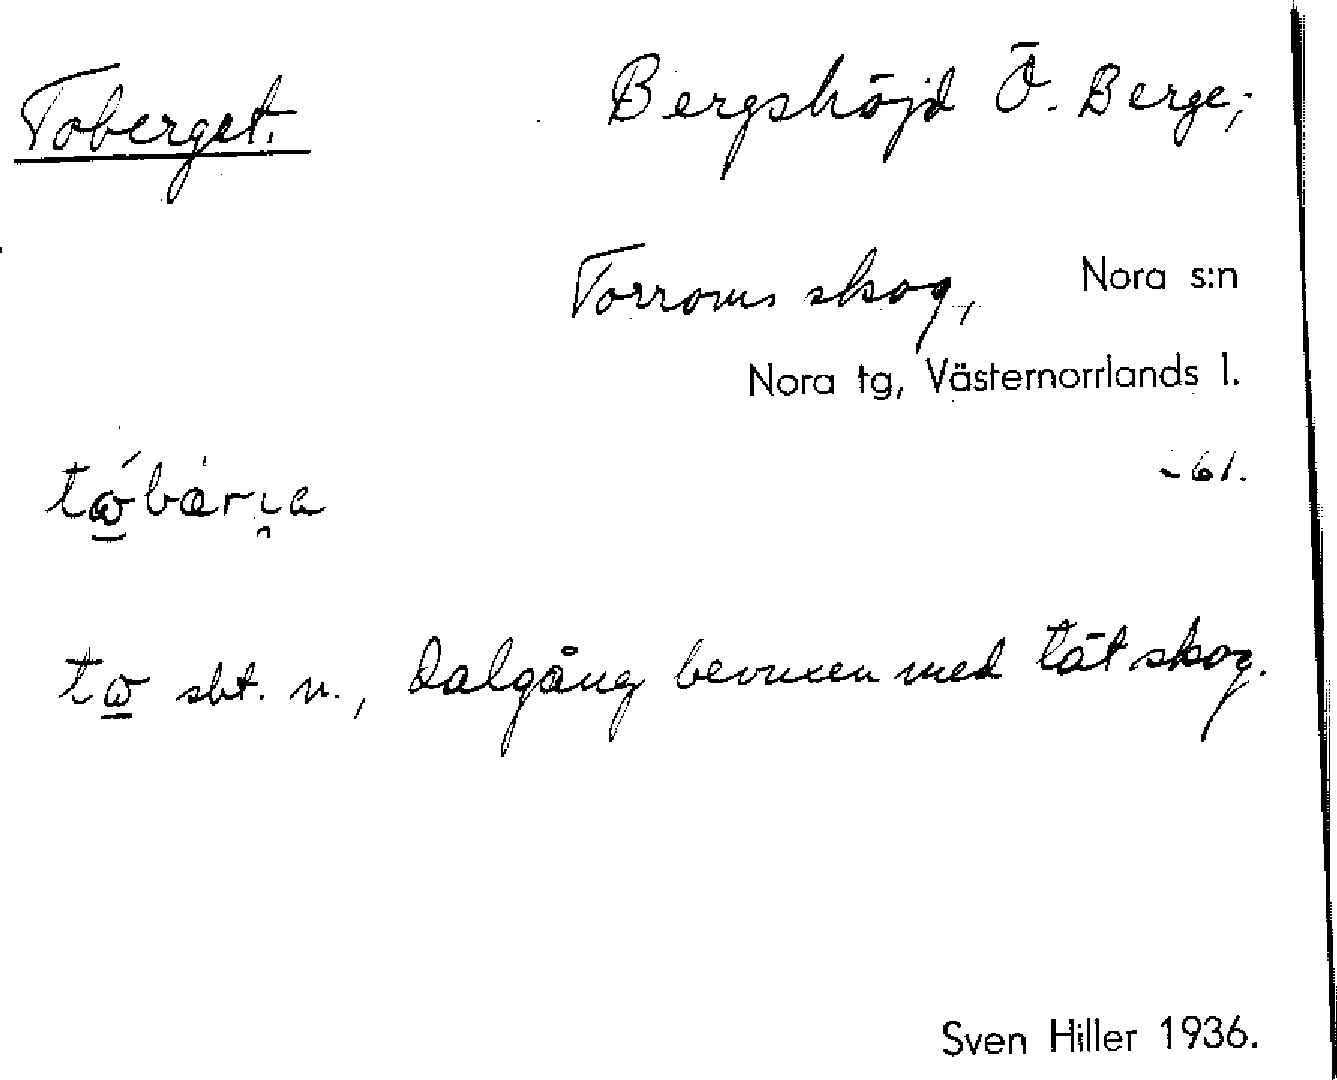 Toberget. Bergshöjd Ö. Berge;
Torroms skog, Nora s:n
Nora tg, Västernorrlands l.
-61.
to sbt. n., dalgång bevuxen med tät skog.
Sven Hiller 1936.